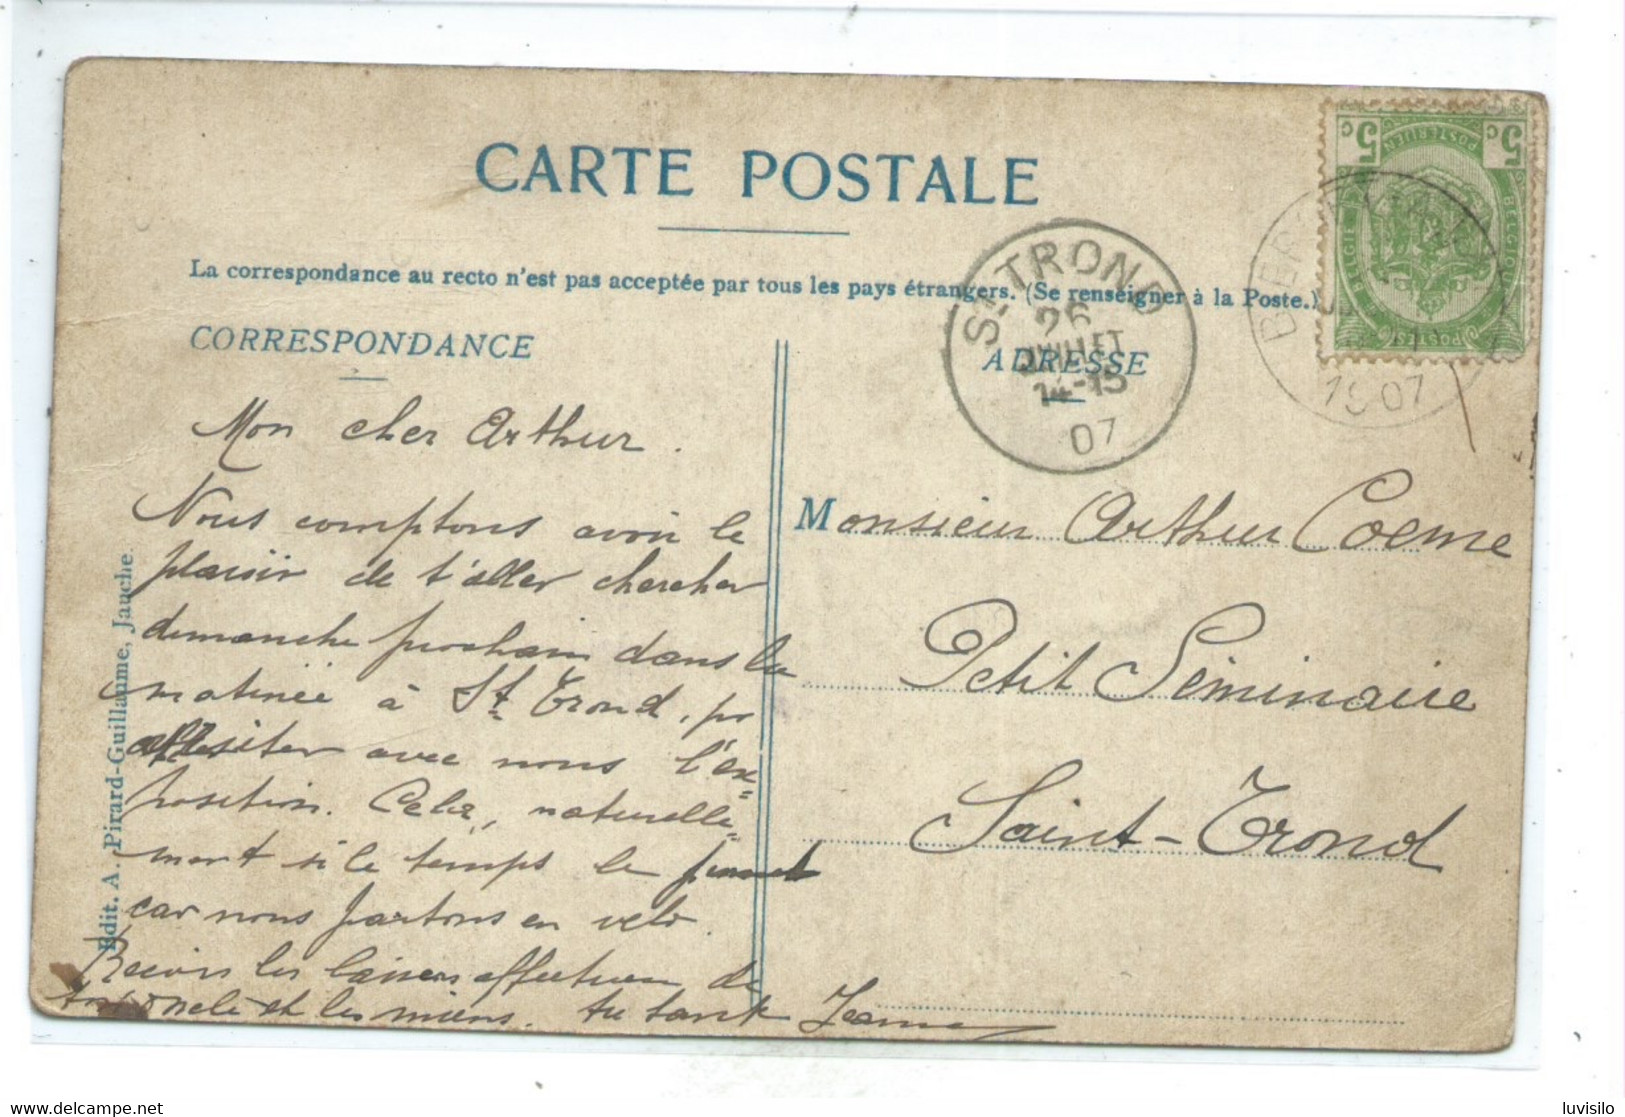 CARTE POSTALE
La correspondance au recto n'est pas acceptée par tous les pays étrangers. (Se renseigner à la Poste.)
CORRESPONDANCE
Mon cher Arthur.
Nous comptons avoir le
plaisir de t'aller chercher
dimanche prochain dans la
matinée à St Trond, pr
visiter avec nous l'ex=
position. Cela, naturelle=
ment si le temps le permet
car nous partons en vélo.
Reçois les baisers affectueux de
ton oncle et les miens. ta tante Jeanne
Edit. A. Pirard-Guillaume, Jauche.
ADRESSE
Monsieur Arthur Coeme
Petit Séminaire
Saint-Trond
ST TROND
26
JUILLET
14-15
07
5c
5c
POSTERIJEN
BELGIE
BELGIQUE
POSTES
1907
luvisilo